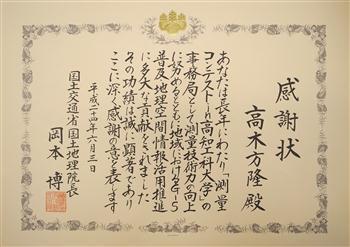 感謝状
高木方隆殿
あなたは長年にわたり「測量
コンテストin高知工科大学」の
事務局として測量技術力の向上
に努めるとともに地域におけるGIS
普及地理空間情報活用推進
に多大な貢献をされました
その功績は誠に顕著であり
ここに深く感謝の意を表します
平成二十四年六月三日
国土交通省国土地理院長
岡本博